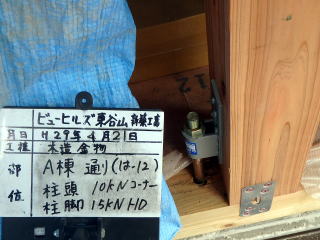 ビューヒルズ東谷山 新築工事
月日 H29年4月21日
工種 木造金物
部位 A棟 通り(は-12)
柱頭 10kNコーナー
柱脚 15kN HD
12